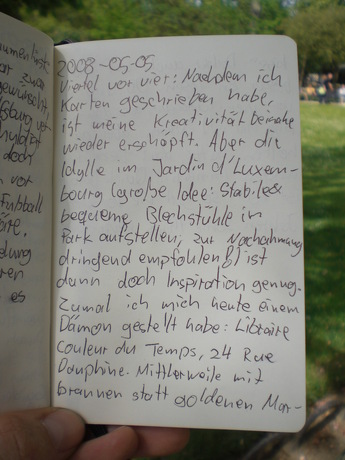 2008-05-05
Viertel vor vier: Nachdem ich
Karten geschrieben habe,
ist meine Kreativität beinahe
wieder erschöpft. Aber die
Idylle im Jardin d'Luxem-
bourg (große Idee: Stabile &
bequeme Blechstühle im
Park aufstellen, zur Nachahmung
dringend empfohlen!) ist
dann doch Inspiration genug.
Zumal ich mich heute einem
Dämon gestellt habe: Libraire
Couleur du Temps, 24 Rue
Dauphine. Mittlerweile mit
braunen statt goldenen Mar-
vor
Fußball
es